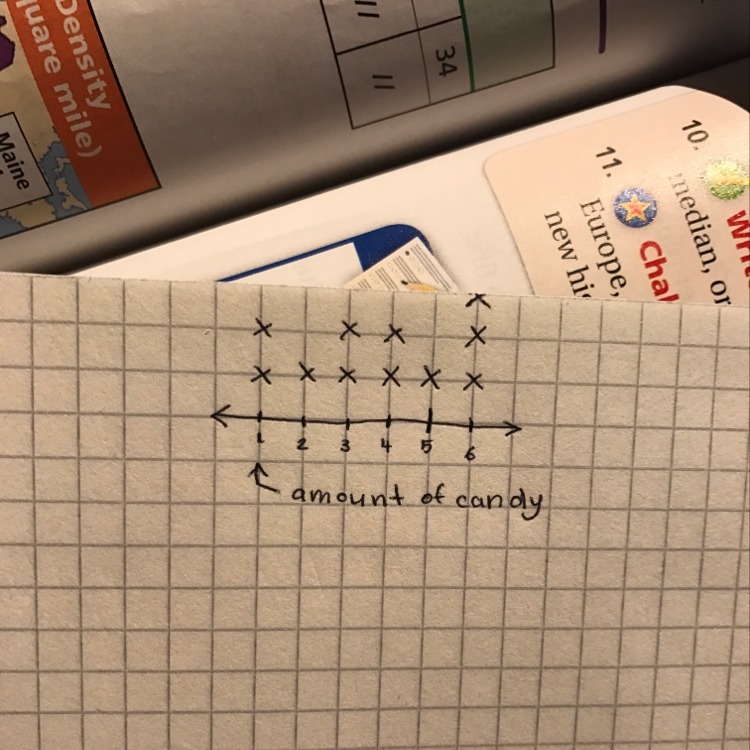 Density
quare mile)
Maine
34
10.
Wri
median, or
11.
Chal
Europe,
new his
x
x x x x
x x x x x x
1 2 3 4 5 6
amount of candy